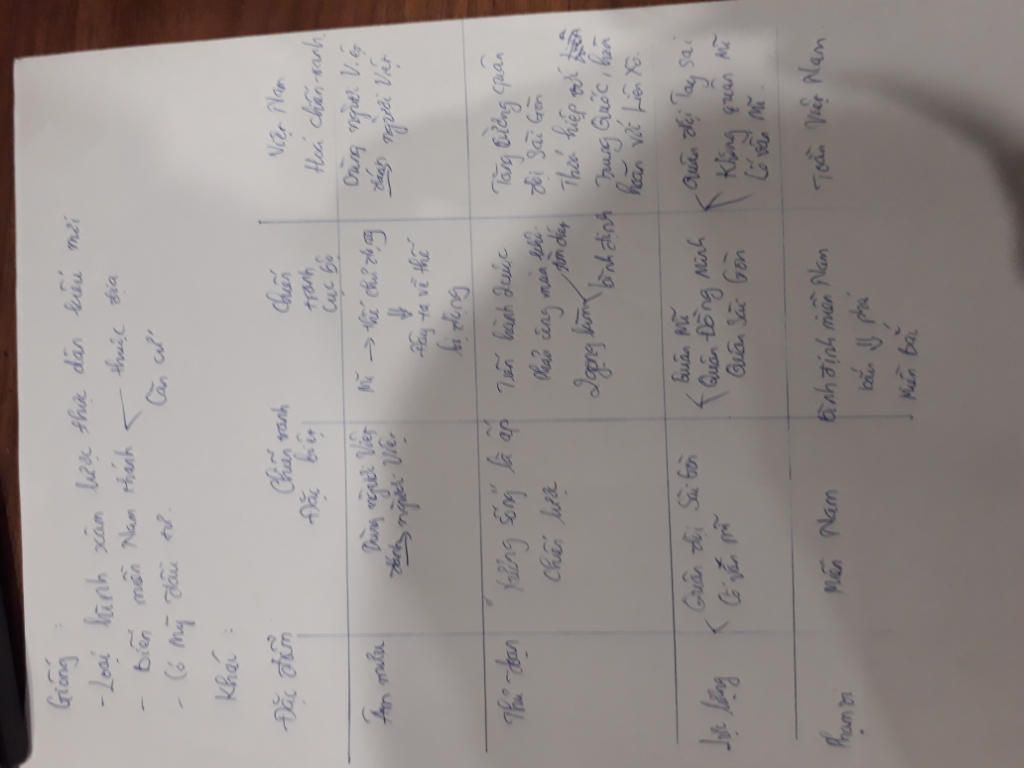 Giống :
- Loại hình xâm lược thực dân kiểu mới
- Biến miền Nam thành thuộc địa
Căn cứ
- Có Mỹ đầu tư.
Khác :
Đặc điểm
Chiến tranh
Đặc biệt
Chiến
tranh
Cục bộ
Việt Nam
Hoá chiến tranh
Âm mưu
Dùng người Việt
đánh người Việt
Mĩ → thế chủ động
⇓
đẩy ta về thế
bị động
Dùng người Việt
đánh người Việt
Thủ đoạn
"Xương sống" là ấp
Chiến lược
Tiến hành chiến
Phản công mùa khô
bình định
Tăng cường quân
đội Sài Gòn
Thoả hiệp với
Trung Quốc, hoà
hoãn với Liên Xô.
Lực lượng
Quân đội Sài Gòn
Cố vấn mĩ
Quân Mĩ
Quân Đồng minh
Quân Sài Gòn
Quân đội Tay sai
Không quân Mĩ
Cố vấn Mĩ.
Phạm vi
Miền Nam
Bình định miền Nam
bắn ⇓ phá
Miền Bắc
Toàn Việt Nam